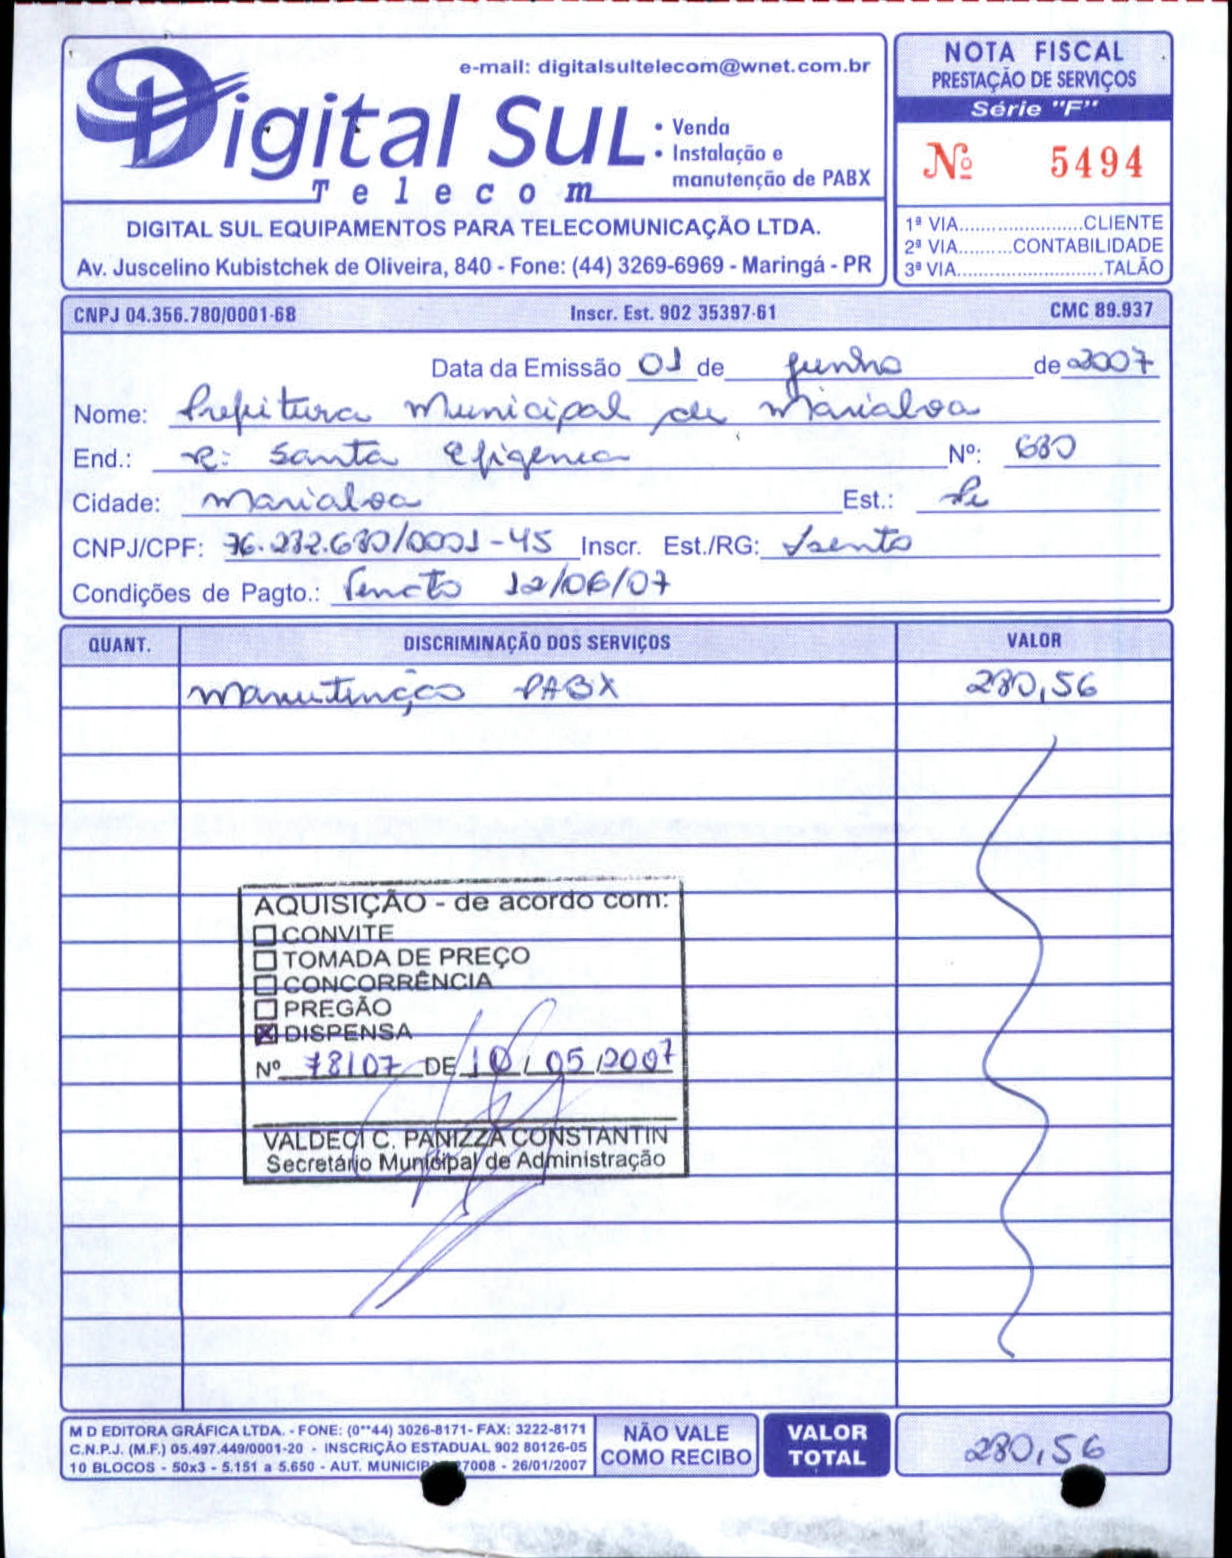 e-mail: digitalsultelecom@wnet.com.br
Digital SUL
Telecom
• Venda
• Instalação e
manutenção de PABX
DIGITAL SUL EQUIPAMENTOS PARA TELECOMUNICAÇÃO LTDA.
Av. Juscelino Kubistchek de Oliveira, 840 - Fone: (44) 3269-6969 - Maringá - PR
NOTA FISCAL
PRESTAÇÃO DE SERVIÇOS
Série "F"
Nº 5494
1ª VIA.......................CLIENTE
2ª VIA..........CONTABILIDADE
3ª VIA...........................TALÃO
CNPJ 04.356.780/0001-68 Inscr. Est. 902 35397-61 CMC 89.937
Data da Emissão 01 de Junho de 2007
Nome: Prefeitura Municipal de Marialva
End.: R: Santa Efigenia Nº: 680
Cidade: Marialva Est.: Pr
CNPJ/CPF: 76.282.680/0001-45 Inscr. Est./RG: Isento
Condições de Pagto.: Vencto 12/06/07
QUANT. DISCRIMINAÇÃO DOS SERVIÇOS VALOR
Manutenção PABX 280,56
AQUISIÇÃO - de acordo com:
CONVITE
TOMADA DE PREÇO
CONCORRÊNCIA
PREGÃO
X DISPENSA
Nº 78/07 DE 10/05/2007
VALDECI C. PANIZZA CONSTANTIN
Secretário Municipal de Administração
M D EDITORA GRÁFICA LTDA. - FONE: (0**44) 3026-8171- FAX: 3222-8171
C.N.P.J. (M.F.) 05.497.449/0001-20 - INSCRIÇÃO ESTADUAL 902 80126-05
10 BLOCOS - 50x3 - 5.151 a 5.650 - AUT. 7008 - 26/01/2007
NÃO VALE
COMO RECIBO
VALOR
TOTAL
280,56